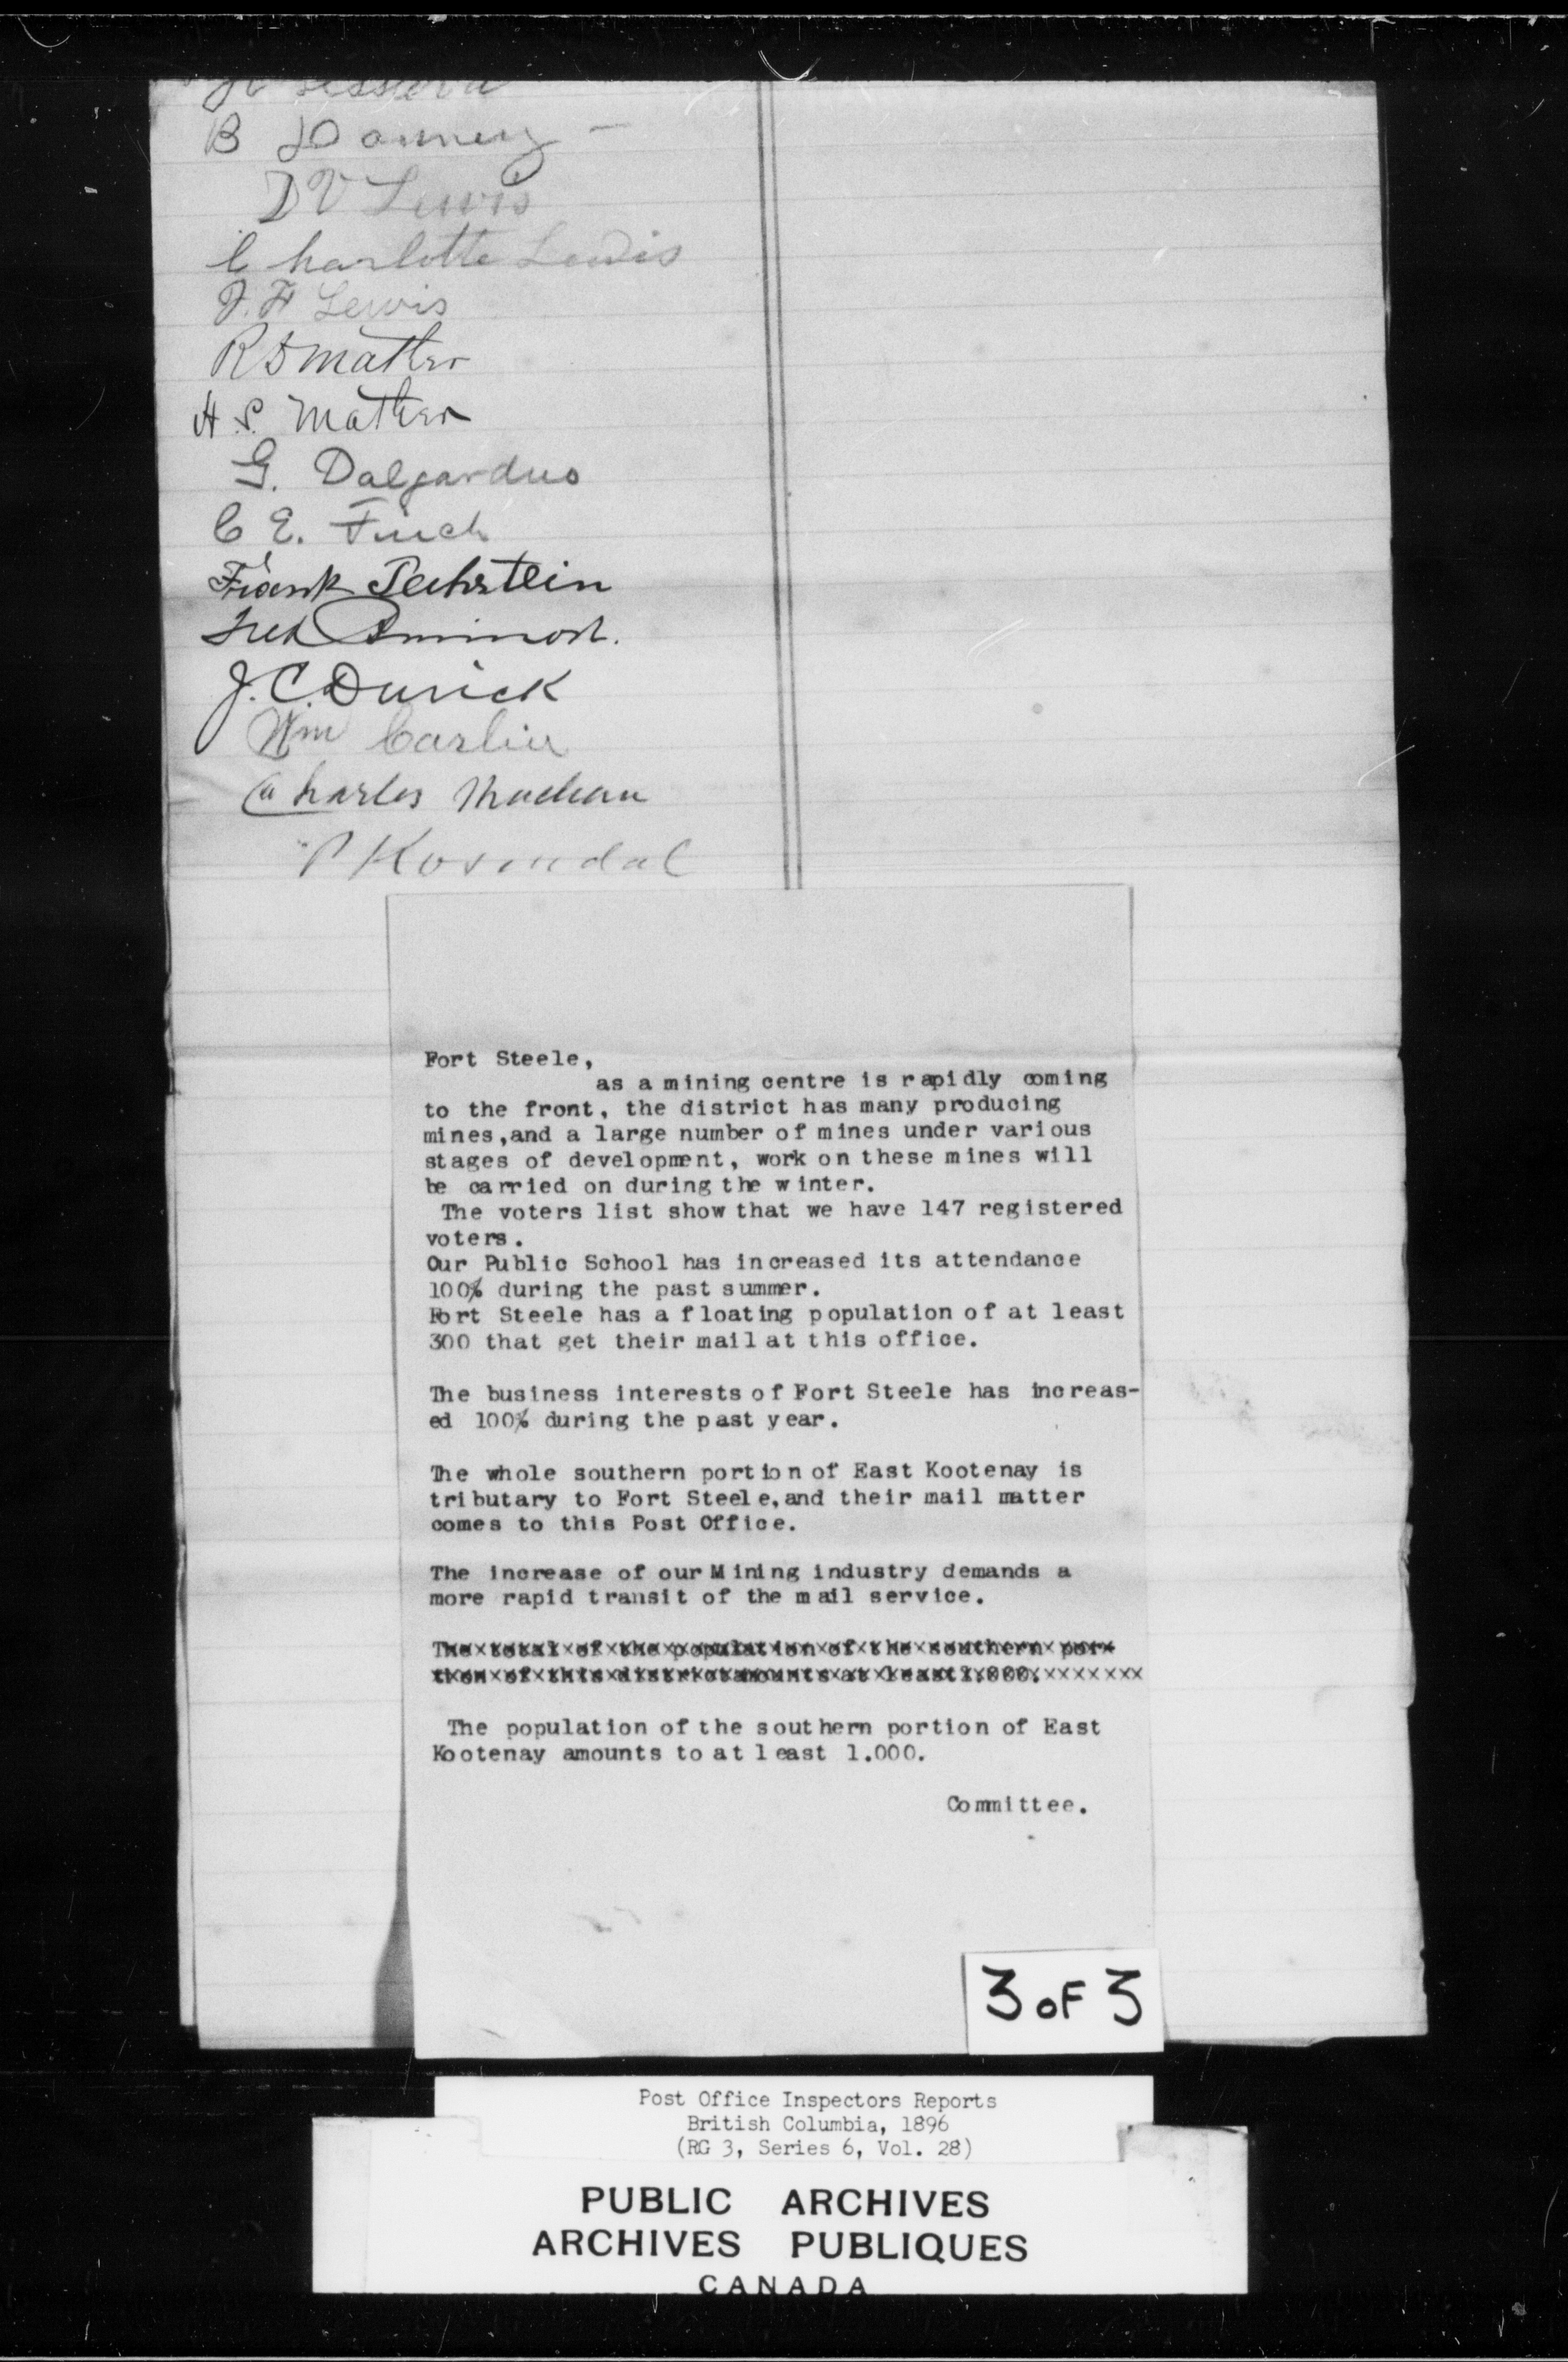 B
D V Lewis
Charlotte Lewis
J. F Lewis
R D Mather
H. S. Mather
G. Dalgardno
C E. Finch
Frank
Fred
J. C. Durick
Wm Carlin
Charles
P
Fort Steele,
as a mining centre is rapidly coming
to the front, the district has many producing
mines,and a large number of mines under various
stages of development, work on these mines will
be carried on during the winter.
The voters list show that we have 147 registered
voters.
Our Public School has increased its attendance
100% during the past summer.
Fort Steele has a floating population of at least
300 that get their mail at this office.
The business interests of Fort Steele has increas-
ed 100% during the past year.
The whole southern portion of East Kootenay is
tributary to Fort Steele,and their mail matter
comes to this Post Office.
The increase of our Mining industry demands a
more rapid transit of the mail service.
The total of the population of the southern por-
tion of this district amounts at least 1.000.
The population of the southern portion of East
Kootenay amounts to at least 1.000.
Committee.
3 OF 3
Post Office Inspectors Reports
British Columbia, 1896
(RG 3, Series 6, Vol. 28)
PUBLIC ARCHIVES
ARCHIVES PUBLIQUES
CANADA